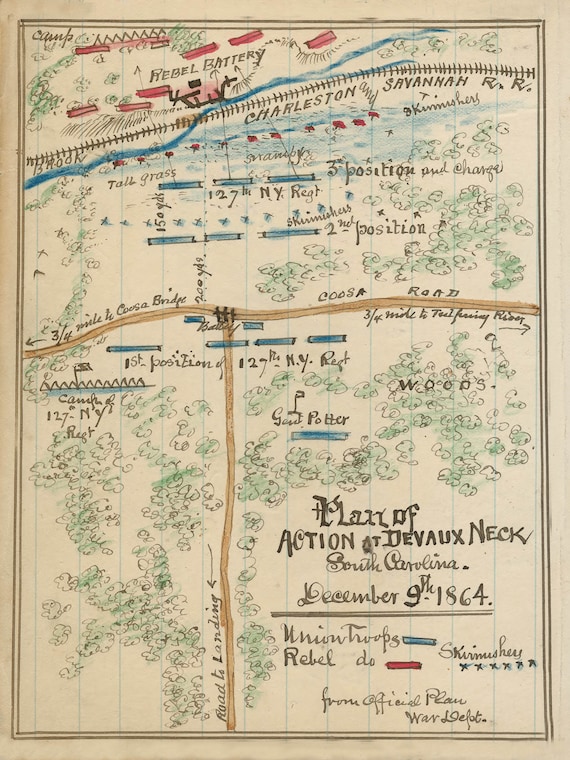 Camp
REBEL BATTERY
SAVANNAH R. R.
CHARLESTON
Skirmishers
BROOK
Swampy
Tall grass
3rd position and charge
127th N.Y. Regt
150 yds
Skirmishers
2nd position
200 yds.
COOSA ROAD
3/4 mile to Coosa Bridge
3/4 mile to Tulifinny River
Battery
1st position of 127th N.Y. Regt
WOODS.
Camp of
127th N.Y.
Regt
Genl Potter
Plan of
ACTION AT DEVAUX NECK
South Carolina.
December 9th 1864.
Road to Landing
Union Troops
Rebel do
Skirmishers
from Official Plan
War Dept.